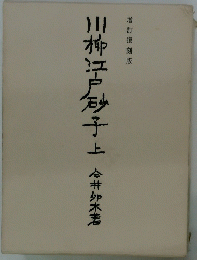 増訂復刻版
川柳江戸砂子 上
今井卯木著